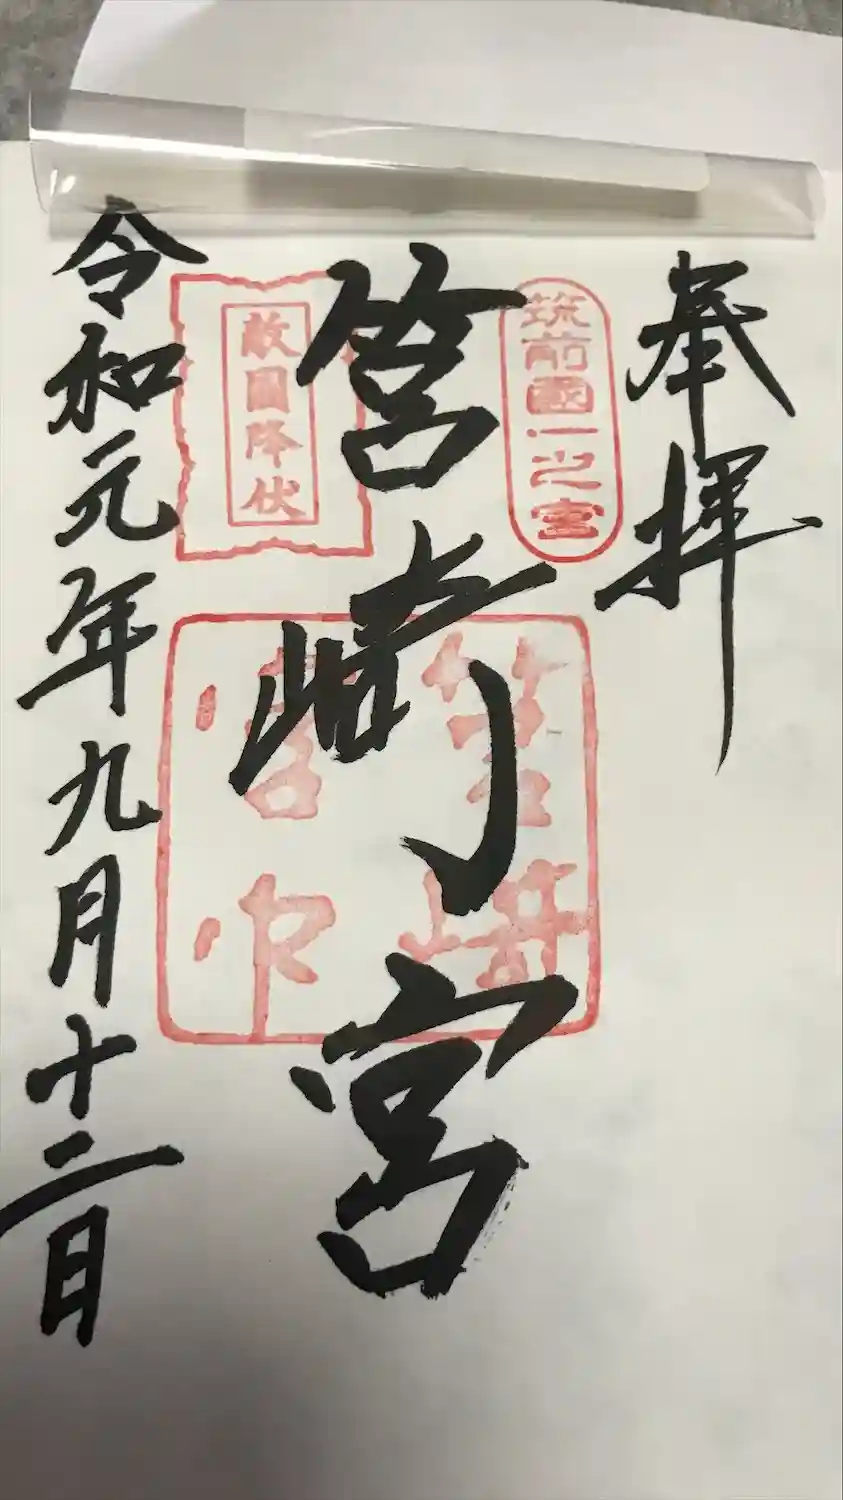 奉拝
筑前國一之宮
筥崎宮
敵国降伏
筥崎
宮印
令和元年九月十二日